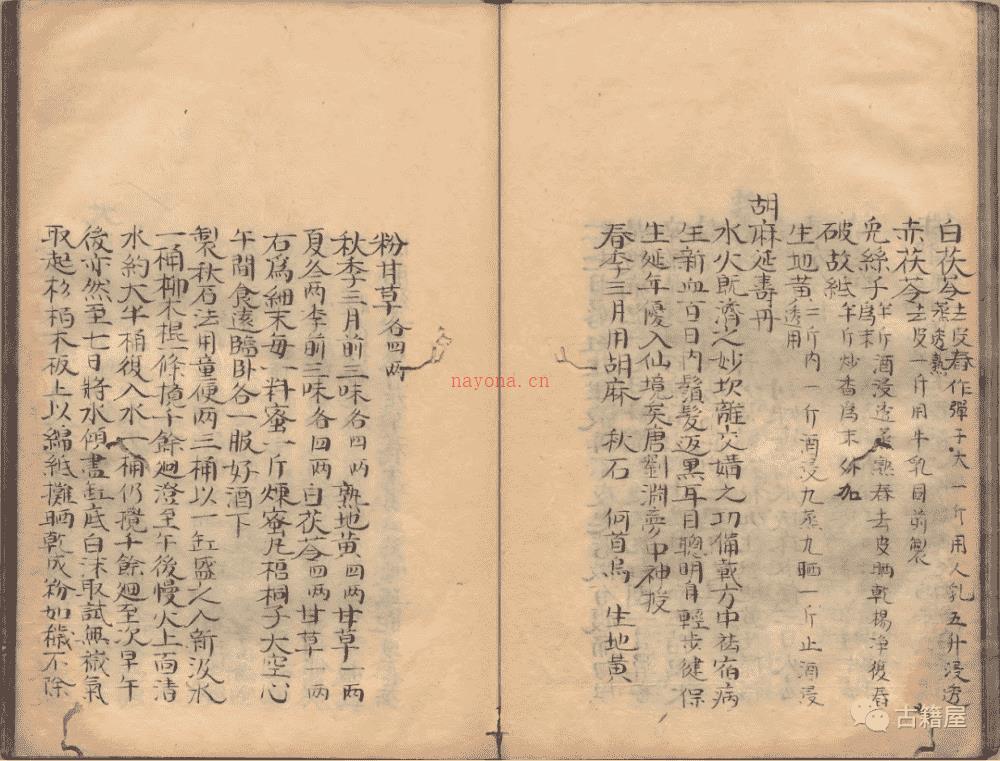 白茯苓去皮舂作彈子大一斤用人乳五升浸透
蒸透熟
赤茯苓去皮一斤用牛乳目前製
兔絲子半斤酒浸透蒸熟舂去皮晒乾揚淨復舂
為末
破故紙半斤炒香為末 外加
生地黄三斤内一斤酒浸九蒸九晒一斤止酒浸
透用
胡麻延壽丹
水火既濟之妙坎離交媾之功備載方中祛宿病
生新血百日内鬚髮返黑耳目聰明身輕步健保
生延年優入仙境矣唐劉淵夢中神授
春季三月用胡麻 秋石 何首烏 生地黃
粉甘草各四两
秋季三月前三味各四两熟地黄四两甘草一两
夏今两季前三味各四两白茯苓四两甘草一两
右爲細末每一料蜜一斤煉蜜凡梧桐子大空心
午間食遠臨卧各一服好酒下
製秋石法用童便两三桶以一缸盛之入新汲水
一桶柳木棍一條攪千餘迴澄至午後慢火上面清
水約大半桶復入水一桶仍攪千餘迴至次早午
後亦然至七日將水傾盡缸底白沫取試無穢氣
取起杉栢木板上以綿紙攤晒乾成粉如穢不除
nayona.cn
古籍屋